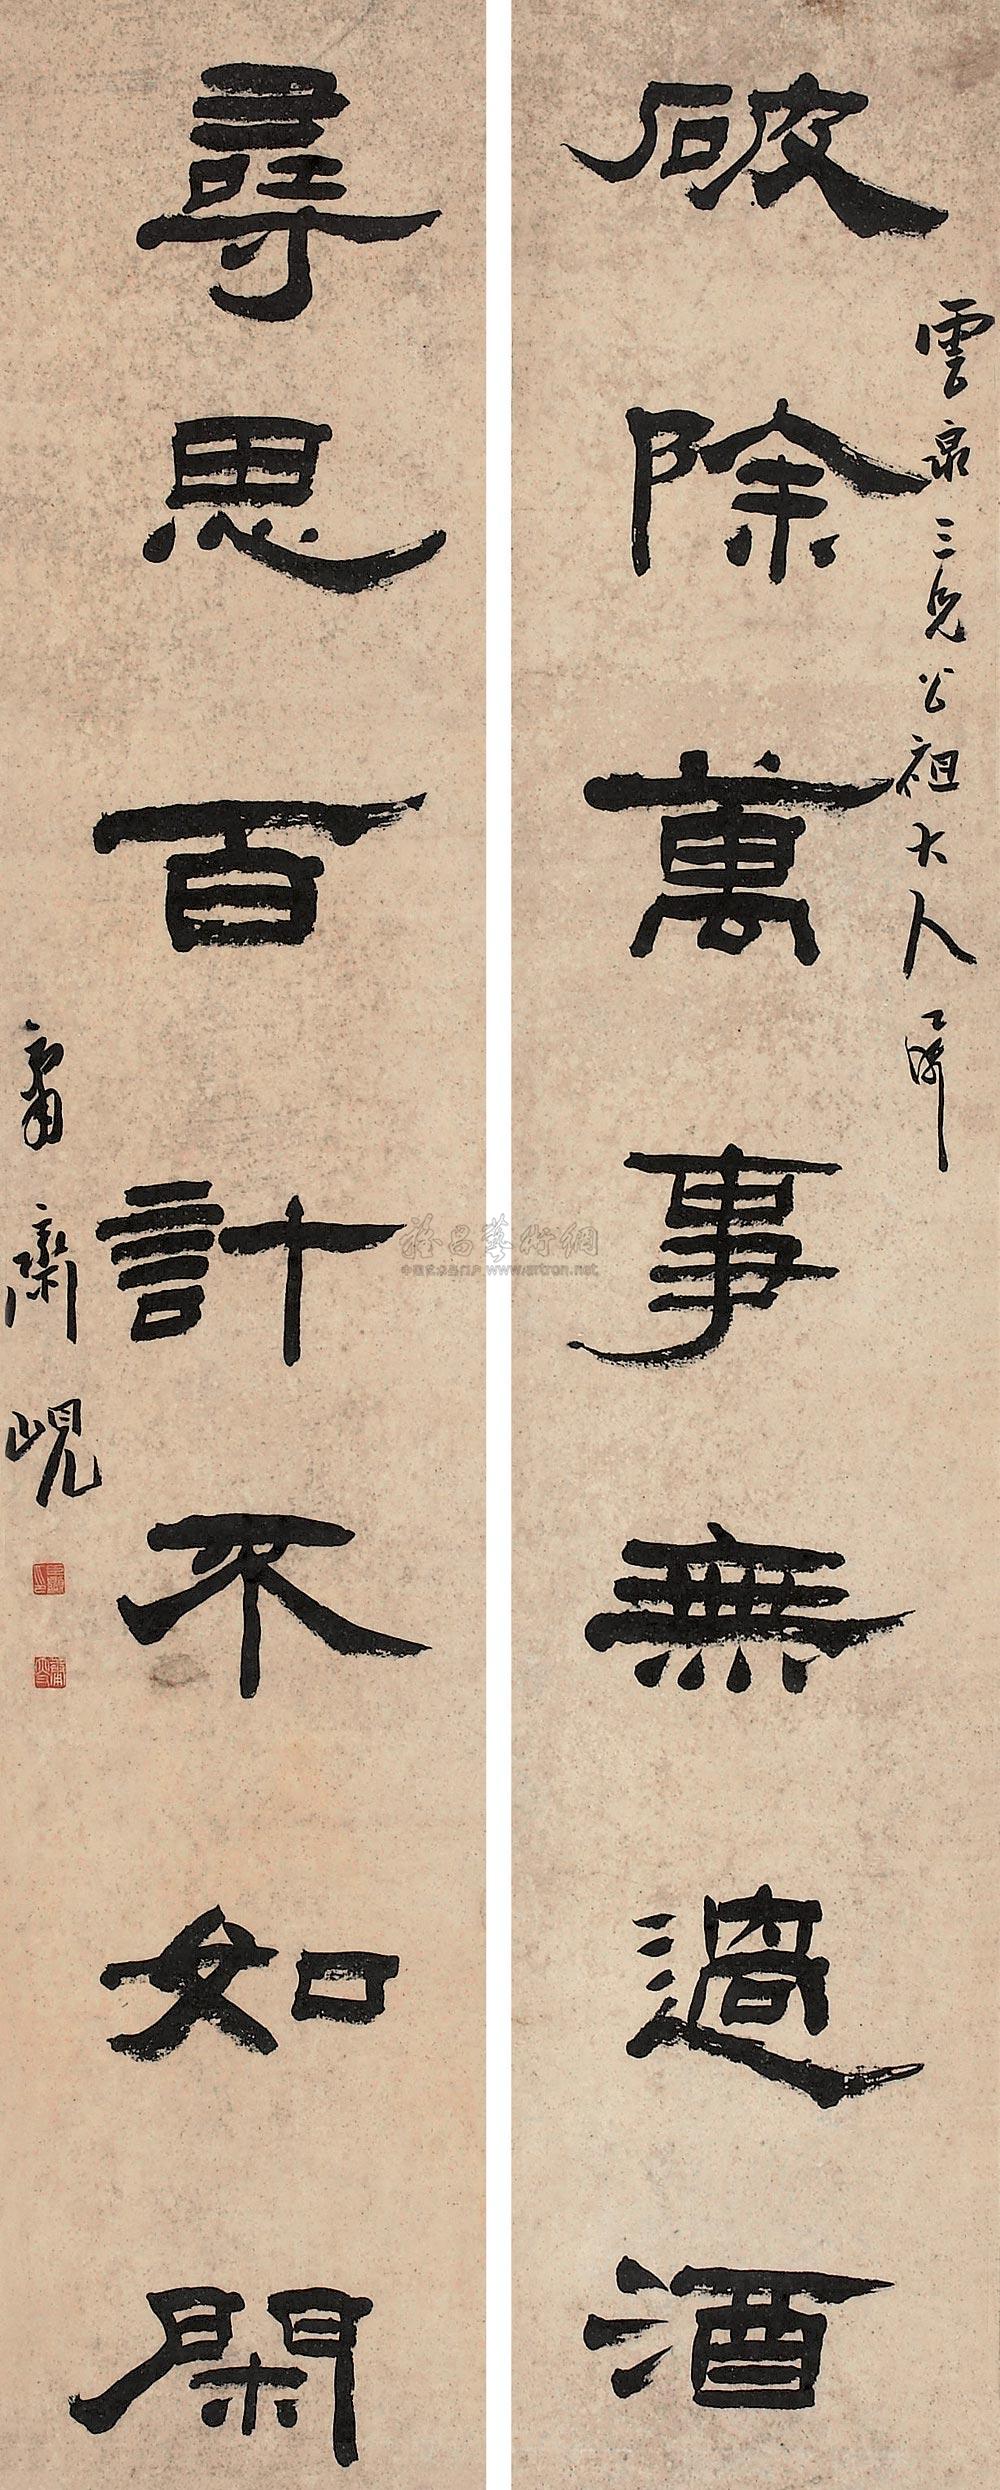 破除萬事無過酒
雲泉三兄公祖大人
尋思百計不如閑
庸齋峴
雅昌藝術網
www.artron.net